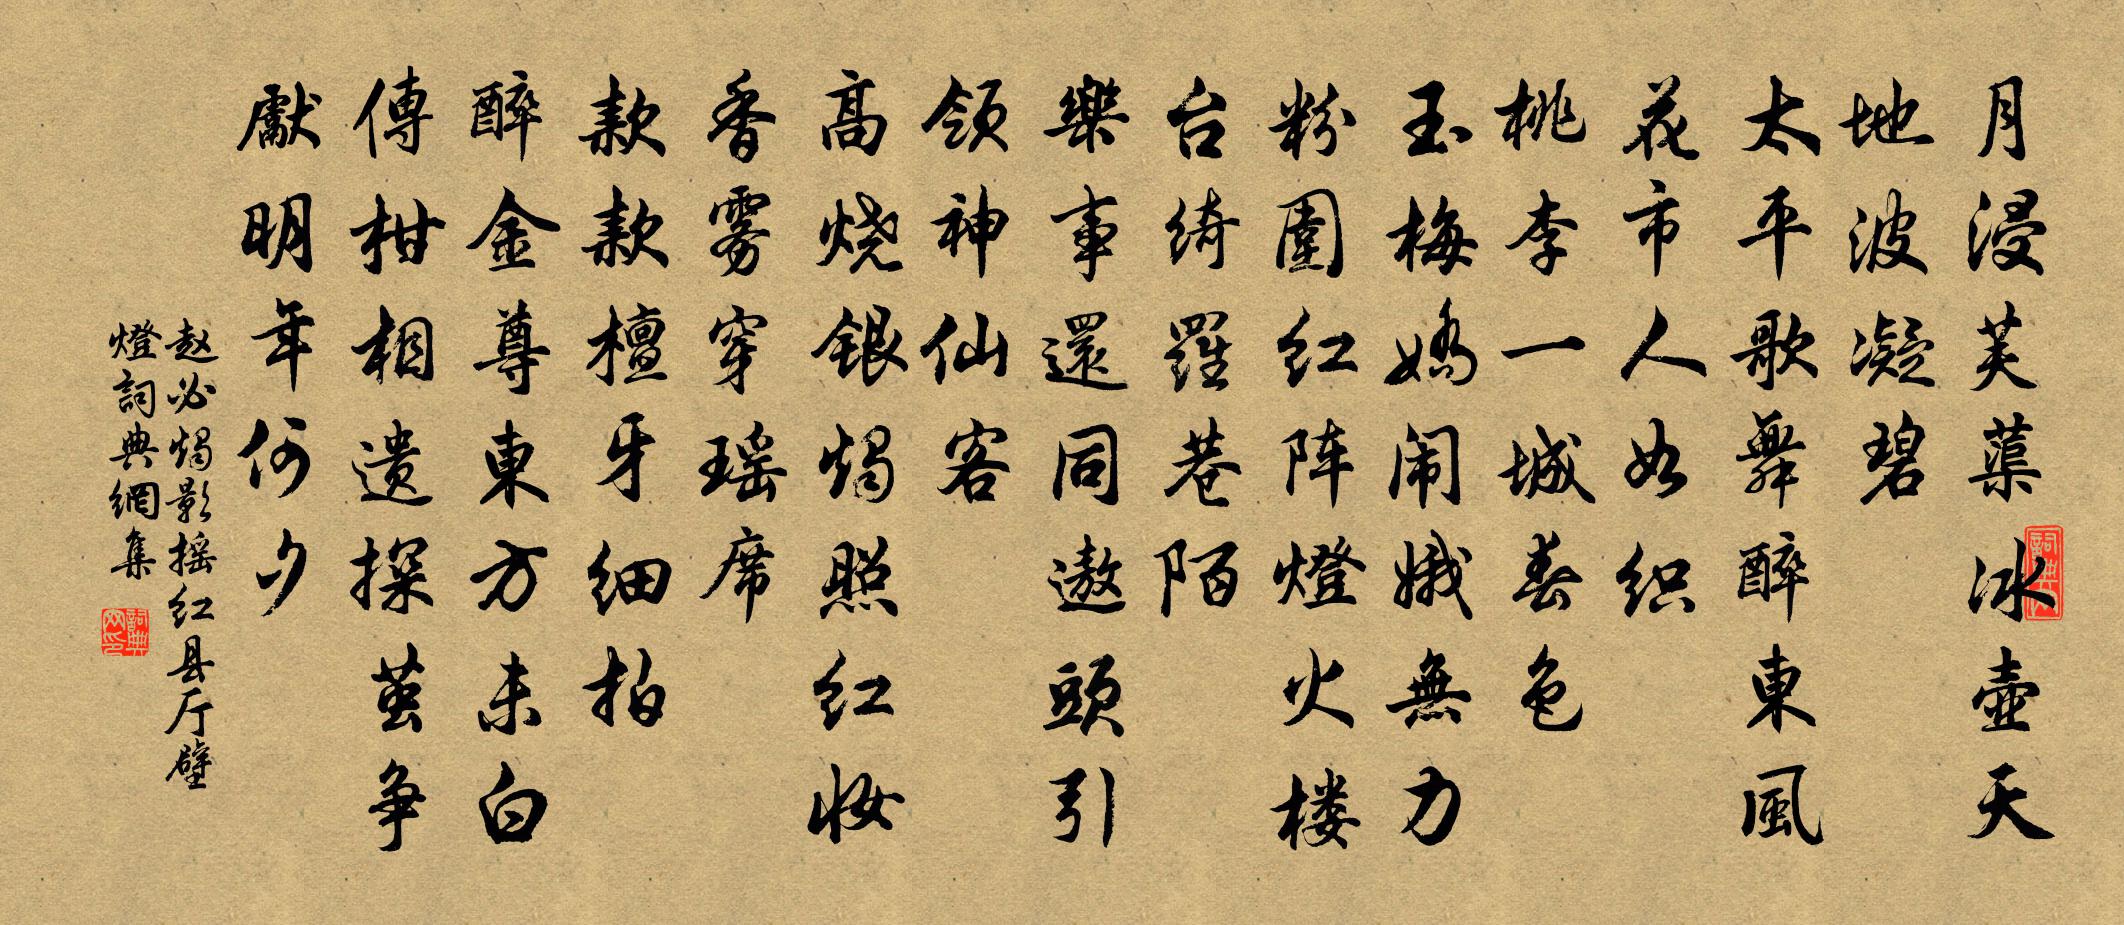 月浸芙蕖冰壶天
地波凝碧
太平歌舞醉東風
花市人如织
桃李一城春色
玉梅娇闹娥無力
粉圍红阵燈火楼
台绮羅巷陌
樂事還同遨頭引
领神仙客
高烧银烛照红妆
香雾穿瑶席
款款檀牙细拍
醉金尊東方未白
傳柑相遗探茧争
獻明年何夕
赵必𤩪烛影摇红县厅壁
燈詞典網集